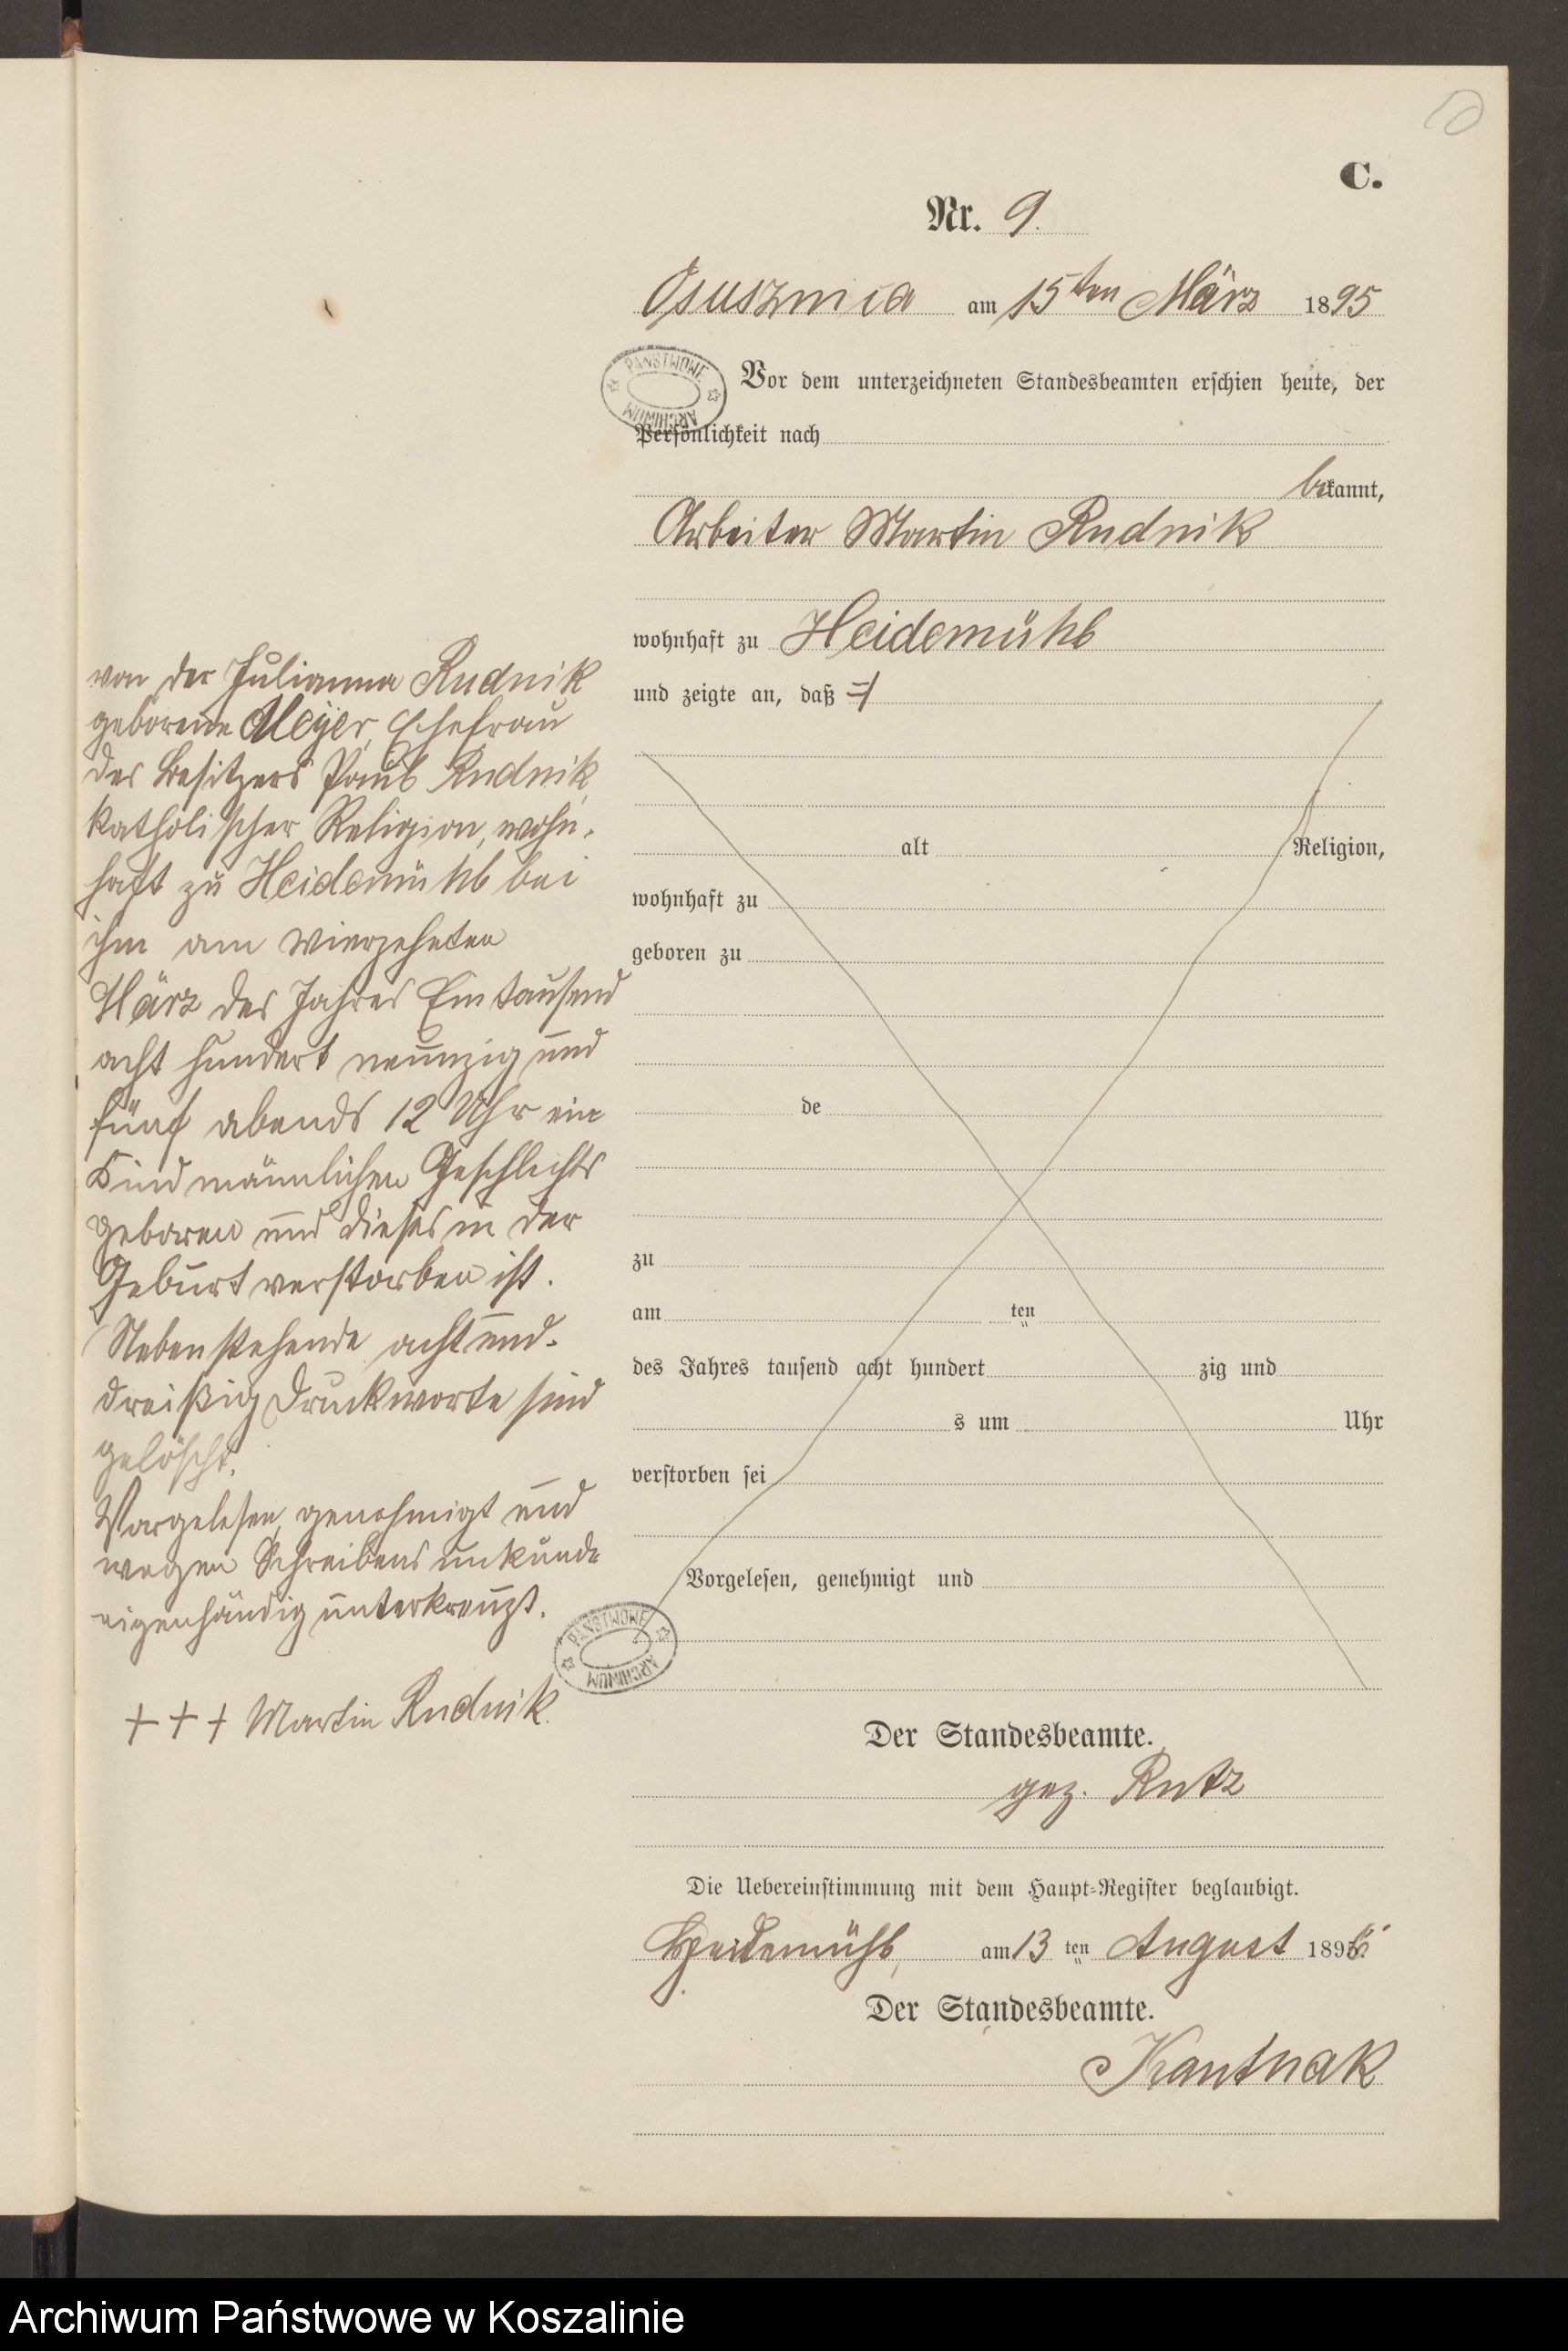 10
C.
Nr. 9.
Osusznica am 15ten März 1895
PAŃSTWOWE ARCHIWUM
Vor dem unterzeichneten Standesbeamten erschien heute, der
Persönlichkeit nach
bekannt,
Arbeiter Martin Rudnik
wohnhaft zu Heidemühl
und zeigte an, daß
von der Julianna Rudnik
geborene Meyer, Ehefrau
des Besitzers Paul Rudnik,
katholischer Religion, wohn-
haft zu Heidemühl bei
ihm am vierzehnten
März des Jahres Eintausend
acht hundert neunzig und
fünf abends 12 Uhr ein
Kind männlichen Geschlechts
geboren und dieses in der
Geburt verstorben ist.
Nebenstehende acht und-
dreißig Druckworte sind
gelöscht.
Vorgelesen, genehmigt und
wegen Schreibens unkunde
eigenhändig unterkreuzt.
+++ Martin Rudnik.
alt Religion,
wohnhaft zu
geboren zu
de
zu
am ten
des Jahres tausend acht hundert zig und
s um Uhr
verstorben sei
Vorgelesen, genehmigt und
PAŃSTWOWE ARCHIWUM
Der Standesbeamte.
gez. Rutz
Die Uebereinstimmung mit dem Haupt-Register beglaubigt.
Heidemühl, am 13 ten August 189
Der Standesbeamte.
Kantnak
Archiwum Państwowe w Koszalinie